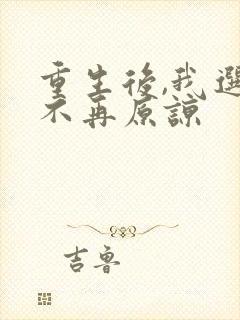 重生後,我選
不再原諒
吉魯